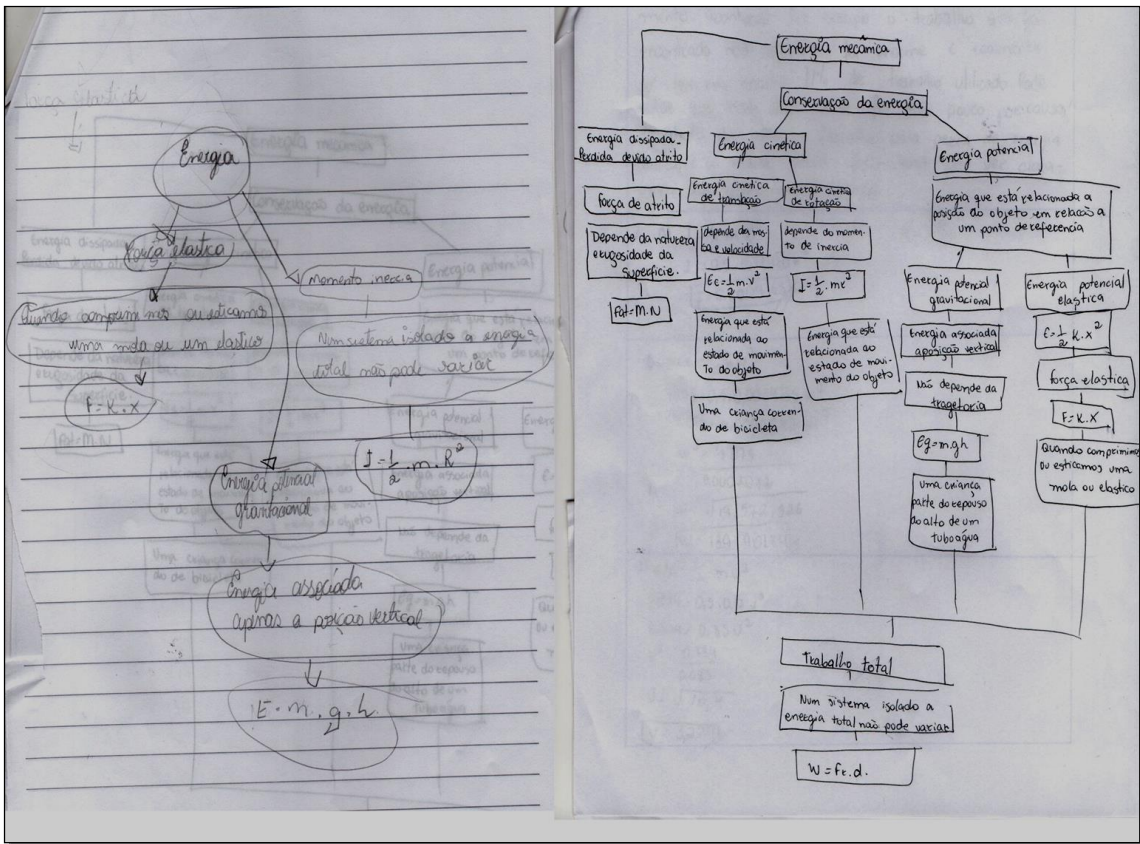 Energia
Força elastica
Quando comprimimos ou esticamos
uma mola ou um elastico
F=K.x
momento inercia
Num sistema isolado a energia
total não pode variar
I=1/2.m.R²
Energia potencial
gravitacional
Energia associada
apenas a posição vertical
E=m.g.h
Energia mecânica
Conservação da energia
Energia dissipada_
Perdida devido atrito
Força de atrito
Depende da natureza
e rugosidade da
superficie.
Fat=M.N
Energia cinética
Energia cinética
de translação
depende da mas
sa e velocidade
Ec=1/2 m.v²
Energia que está
relacionada ao
estado de movimen-
to do objeto
Uma criança corren-
do de bicicleta
Energia cinetica
de rotação
depende do momen-
to de inercia
I=1/2.mr²
Energia que está
relacionada ao
estado de movi-
mento do objeto
Energia potencial
Energia que está relacionada a
posição do objeto em relação a
um ponto de referencia
Energia potencial
gravitacional
Energia associada
a posição vertical
Não depende da
tragetoria
Eg=m.gh
Uma criança
parte do repouso
do alto de um
tuboagua
Energia potencial
elastica
E=1/2 K.x²
força elastica
F=K.X
Quando comprimimos
ou esticamos uma
mola ou elastico
Trabalho total
Num sistema isolado a
energia total não pode variar
W=Fr.d.